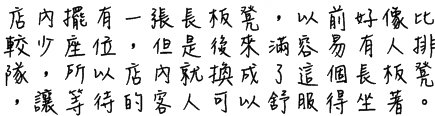 店內擺有一張長板凳，以前好像比
較少座位，但是後來滿容易有人排
隊，所以店內就換成了這個長板凳
，讓等待的客人可以舒服得坐著。